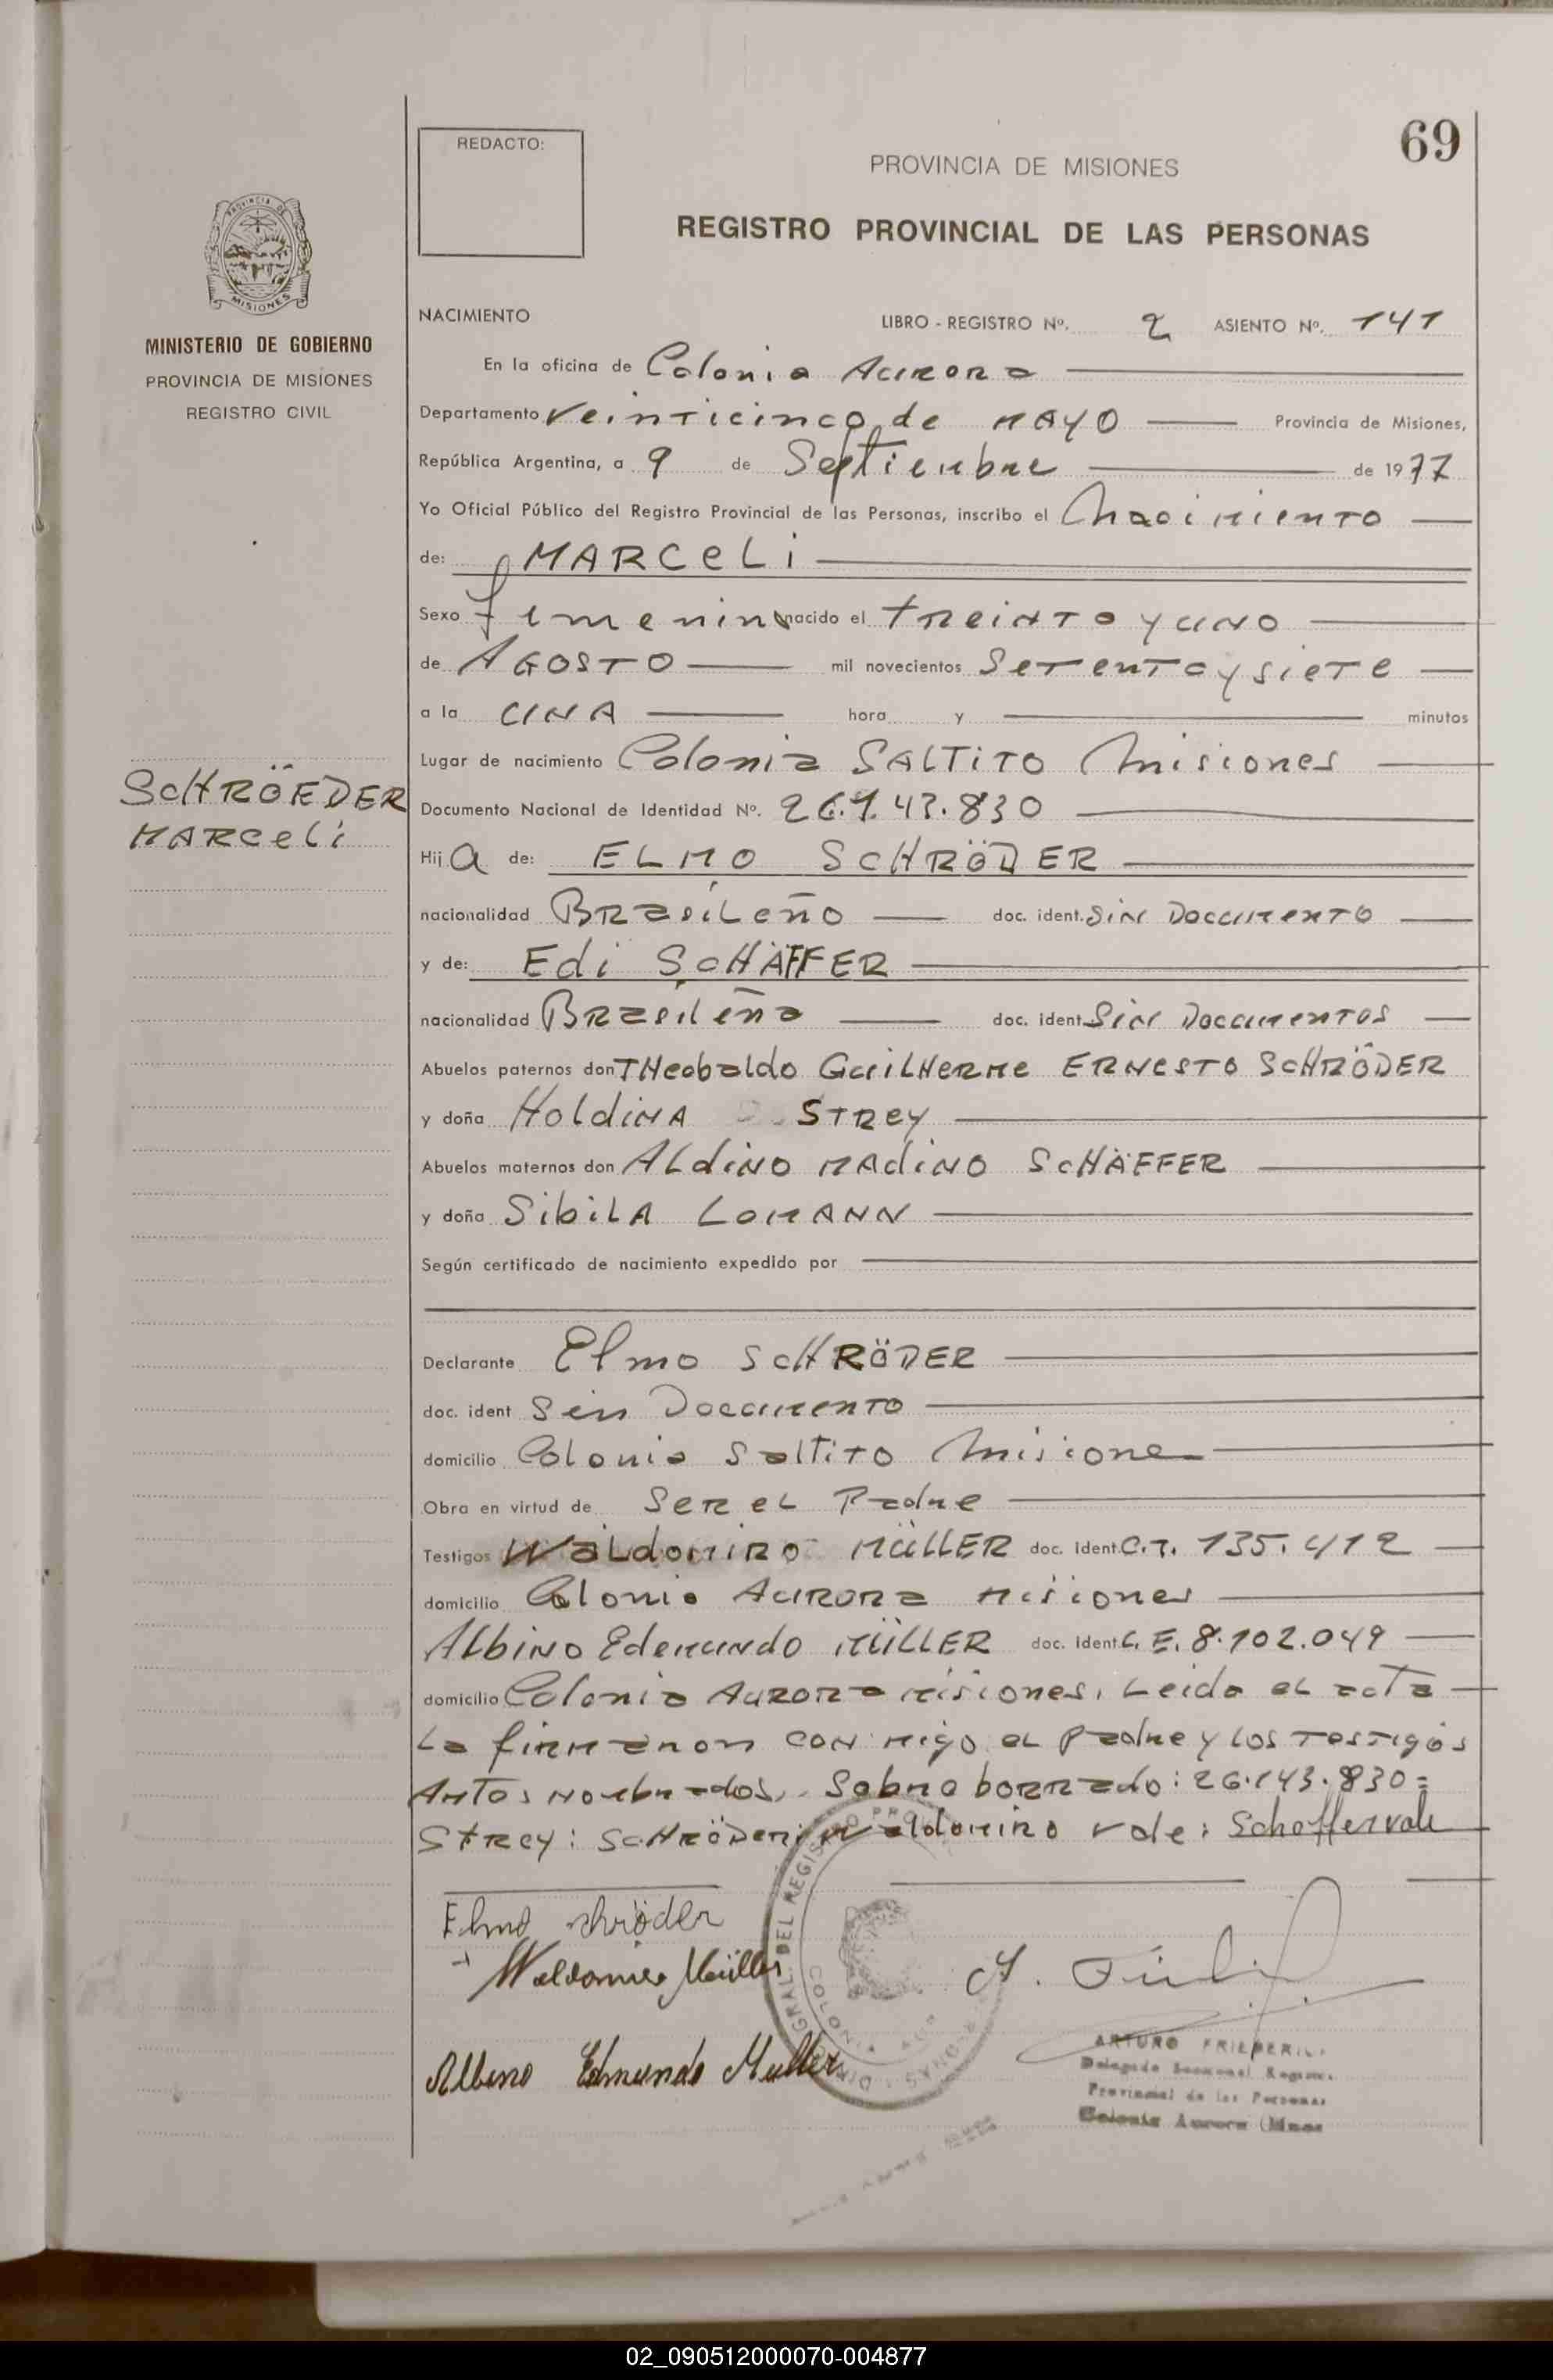 69
REDACTO:
PROVINCIA DE MISIONES
REGISTRO PROVINCIAL DE LAS PERSONAS
PROVINCIA DE
MISIONES
MINISTERIO DE GOBIERNO
PROVINCIA DE MISIONES
REGISTRO CIVIL
NACIMIENTO LIBRO - REGISTRO Nº. 2 ASIENTO Nº. 141
En la oficina de Colonia Aurora
Departamento Veinticinco de MAYO Provincia de Misiones,
República Argentina, a 9 de Septiembre de 1977
Yo Oficial Público del Registro Provincial de las Personas, inscribo el Nacimiento
de: MARCELI
Sexo femenino nacido el treinta y uno
de AGOSTO mil novecientos Setenta y siete
a la UNA hora y minutos
Lugar de nacimiento Colonia SALTITO Misiones
SCHRÖEDER
MARCELI
Documento Nacional de Identidad Nº. 26.143.830
Hij A de: ELMO SCHRÖDER
nacionalidad BRasiLeño doc. ident. Sin Documento
y de: Edi SCHÄFFER
nacionalidad BRasileña doc. ident. Sin Documentos
Abuelos paternos don THeobaldo GuilHerme ERNESTO SCHRÖDER
y doña HoldiNA STRey
Abuelos maternos don ALdiNO MAdiNO SCHÄEFFER
y doña SibiLA LOMANN
Según certificado de nacimiento expedido por
Declarante Elmo SCHRÖDER
doc. ident Sin Documento
domicilio Colonia Saltito Misione
Obra en virtud de Ser el Padre
Testigos WaLdomiro MÜLLER doc. ident C.I. 135.412
domicilio Colonia Aurora Misiones
Albino Edemundo MÜLLER doc. ident L.E. 8.102.049
domicilio Colonia Aurora Misiones, Leida el acta
La firmaron con migo el Padre y los testigos
Antos nombrados. Sobre borrado: 26.143.830=
Strey: SCHRÖDER: Waldomiro vale: Schaffer vale
Elmo schröder
Waldomiro Müller
Albino Edmundo Muller
ARTURO FRIEDERIC
Delegado Seccional Registro
Provincial de las Personas
Colonia Aurora (Mnes
02_090512000070-004877